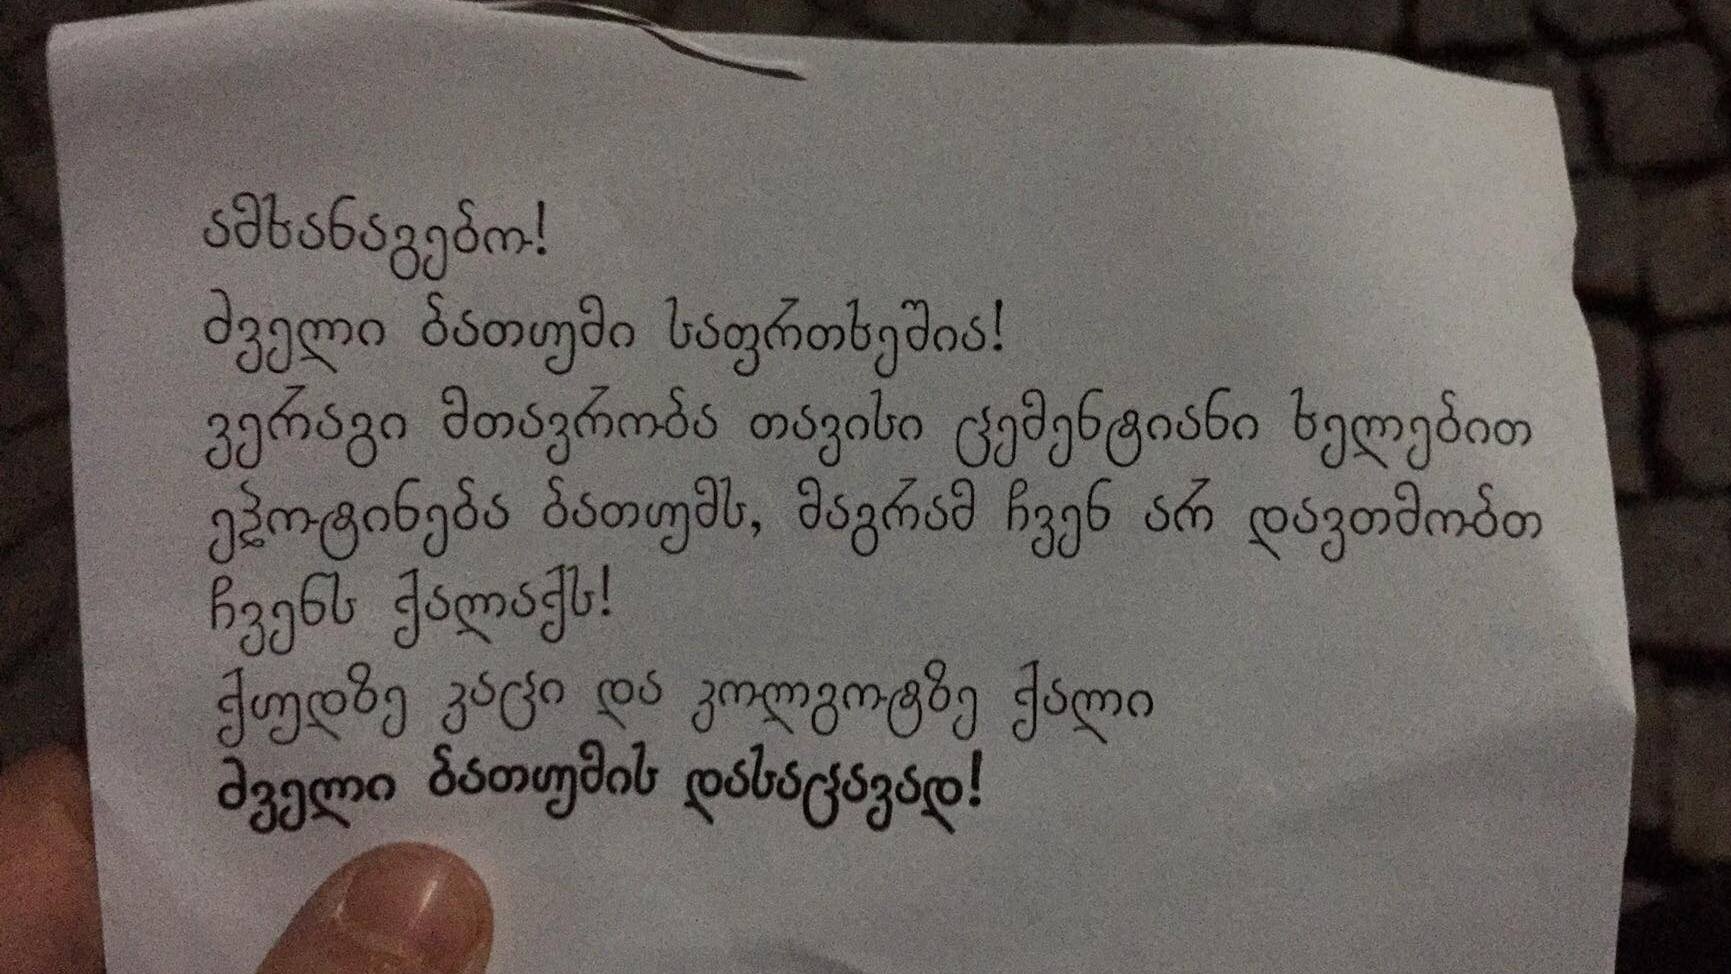 ამხანაგებო!
ძველი ბათუმი საფრთხეშია!
ვერაგი მთავრობა თავისი ცემენტიანი ხელებით
ეპოტინება ბათუმს, მაგრამ ჩვენ არ დავთმობთ
ჩვენს ქალაქს!
ქუდზე კაცი და კოლგოტზე ქალი
ძველი ბათუმის დასაცავად!